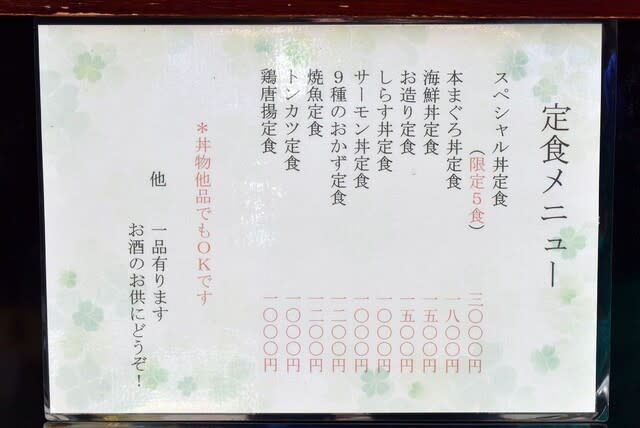 定食メニュー
スペシャル丼定食
(限定5食) 三〇〇〇円
本まぐろ丼定食 一八〇〇円
海鮮丼定食 一五〇〇円
お造り定食 一五〇〇円
しらす丼定食 一〇〇〇円
サーモン丼定食 一〇〇〇円
9種のおかず定食 一二〇〇円
焼魚定食 一二〇〇円
トンカツ定食 一〇〇〇円
鶏唐揚定食 一〇〇〇円
*丼物他品でもOKです
他 一品有ります
お酒のお供にどうぞ!